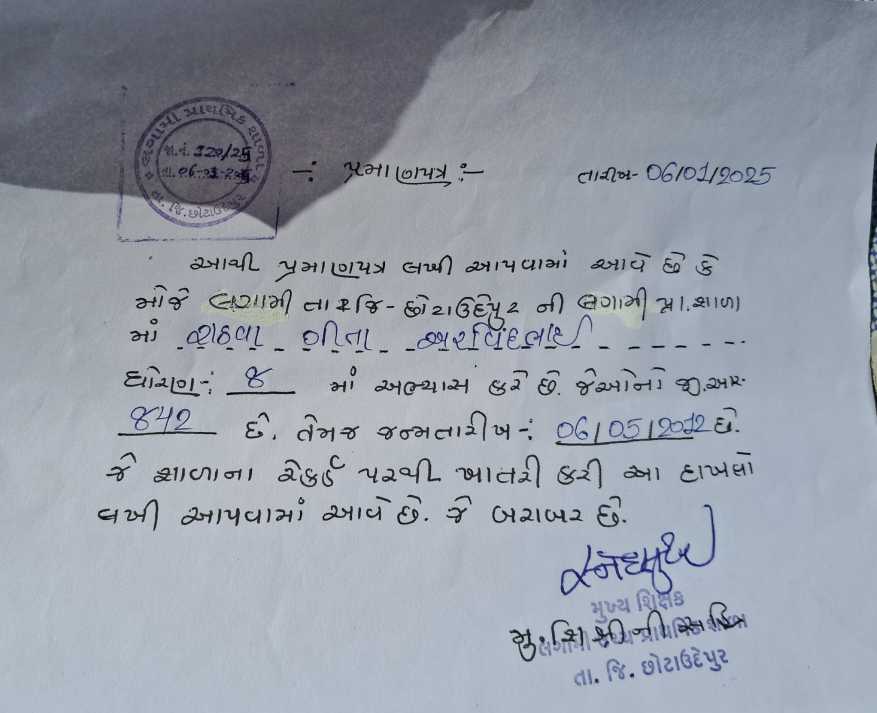 લગામી પ્રાથમિક શાળા
જા.નં. 120/25
તા. 06-01-2025
તા. જિ. છોટાઉદેપુર
-: પ્રમાણપત્ર :-
તારીખ- 06/01/2025
આથી પ્રમાણપત્ર લખી આપવામાં આવે છે કે
મોજે લગામી તા જિ - છોટાઉદેપુર ની લગામી પ્રા. શાળા
માં રાઠવા ગીતા અરવિંદભાઈ
ધોરણ-: 8 માં અભ્યાસ કરે છે. જેઓનો જી.આર.
842 છે, તેમજ જન્મતારીખ -: 06/05/2012 છે.
જે શાળાના રેકર્ડ પરથી ખાતરી કરી આ દાખલો
લખી આપવામાં આવે છે. જે બરાબર છે.
મુખ્ય શિક્ષક
મુ. શિ શ્રી ની સહિ
લગામી પ્રાથમિક શાળા
તા. જિ. છોટાઉદેપુર